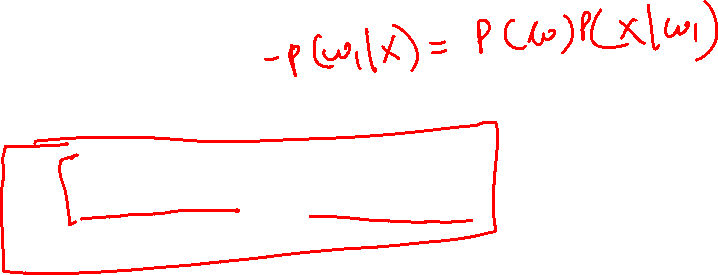 -P(ω₁|X) = P(ω)P(X|ω₁)